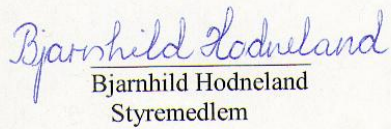 Bjarnhild Hodneland
Bjarnhild Hodneland
Styremedlem